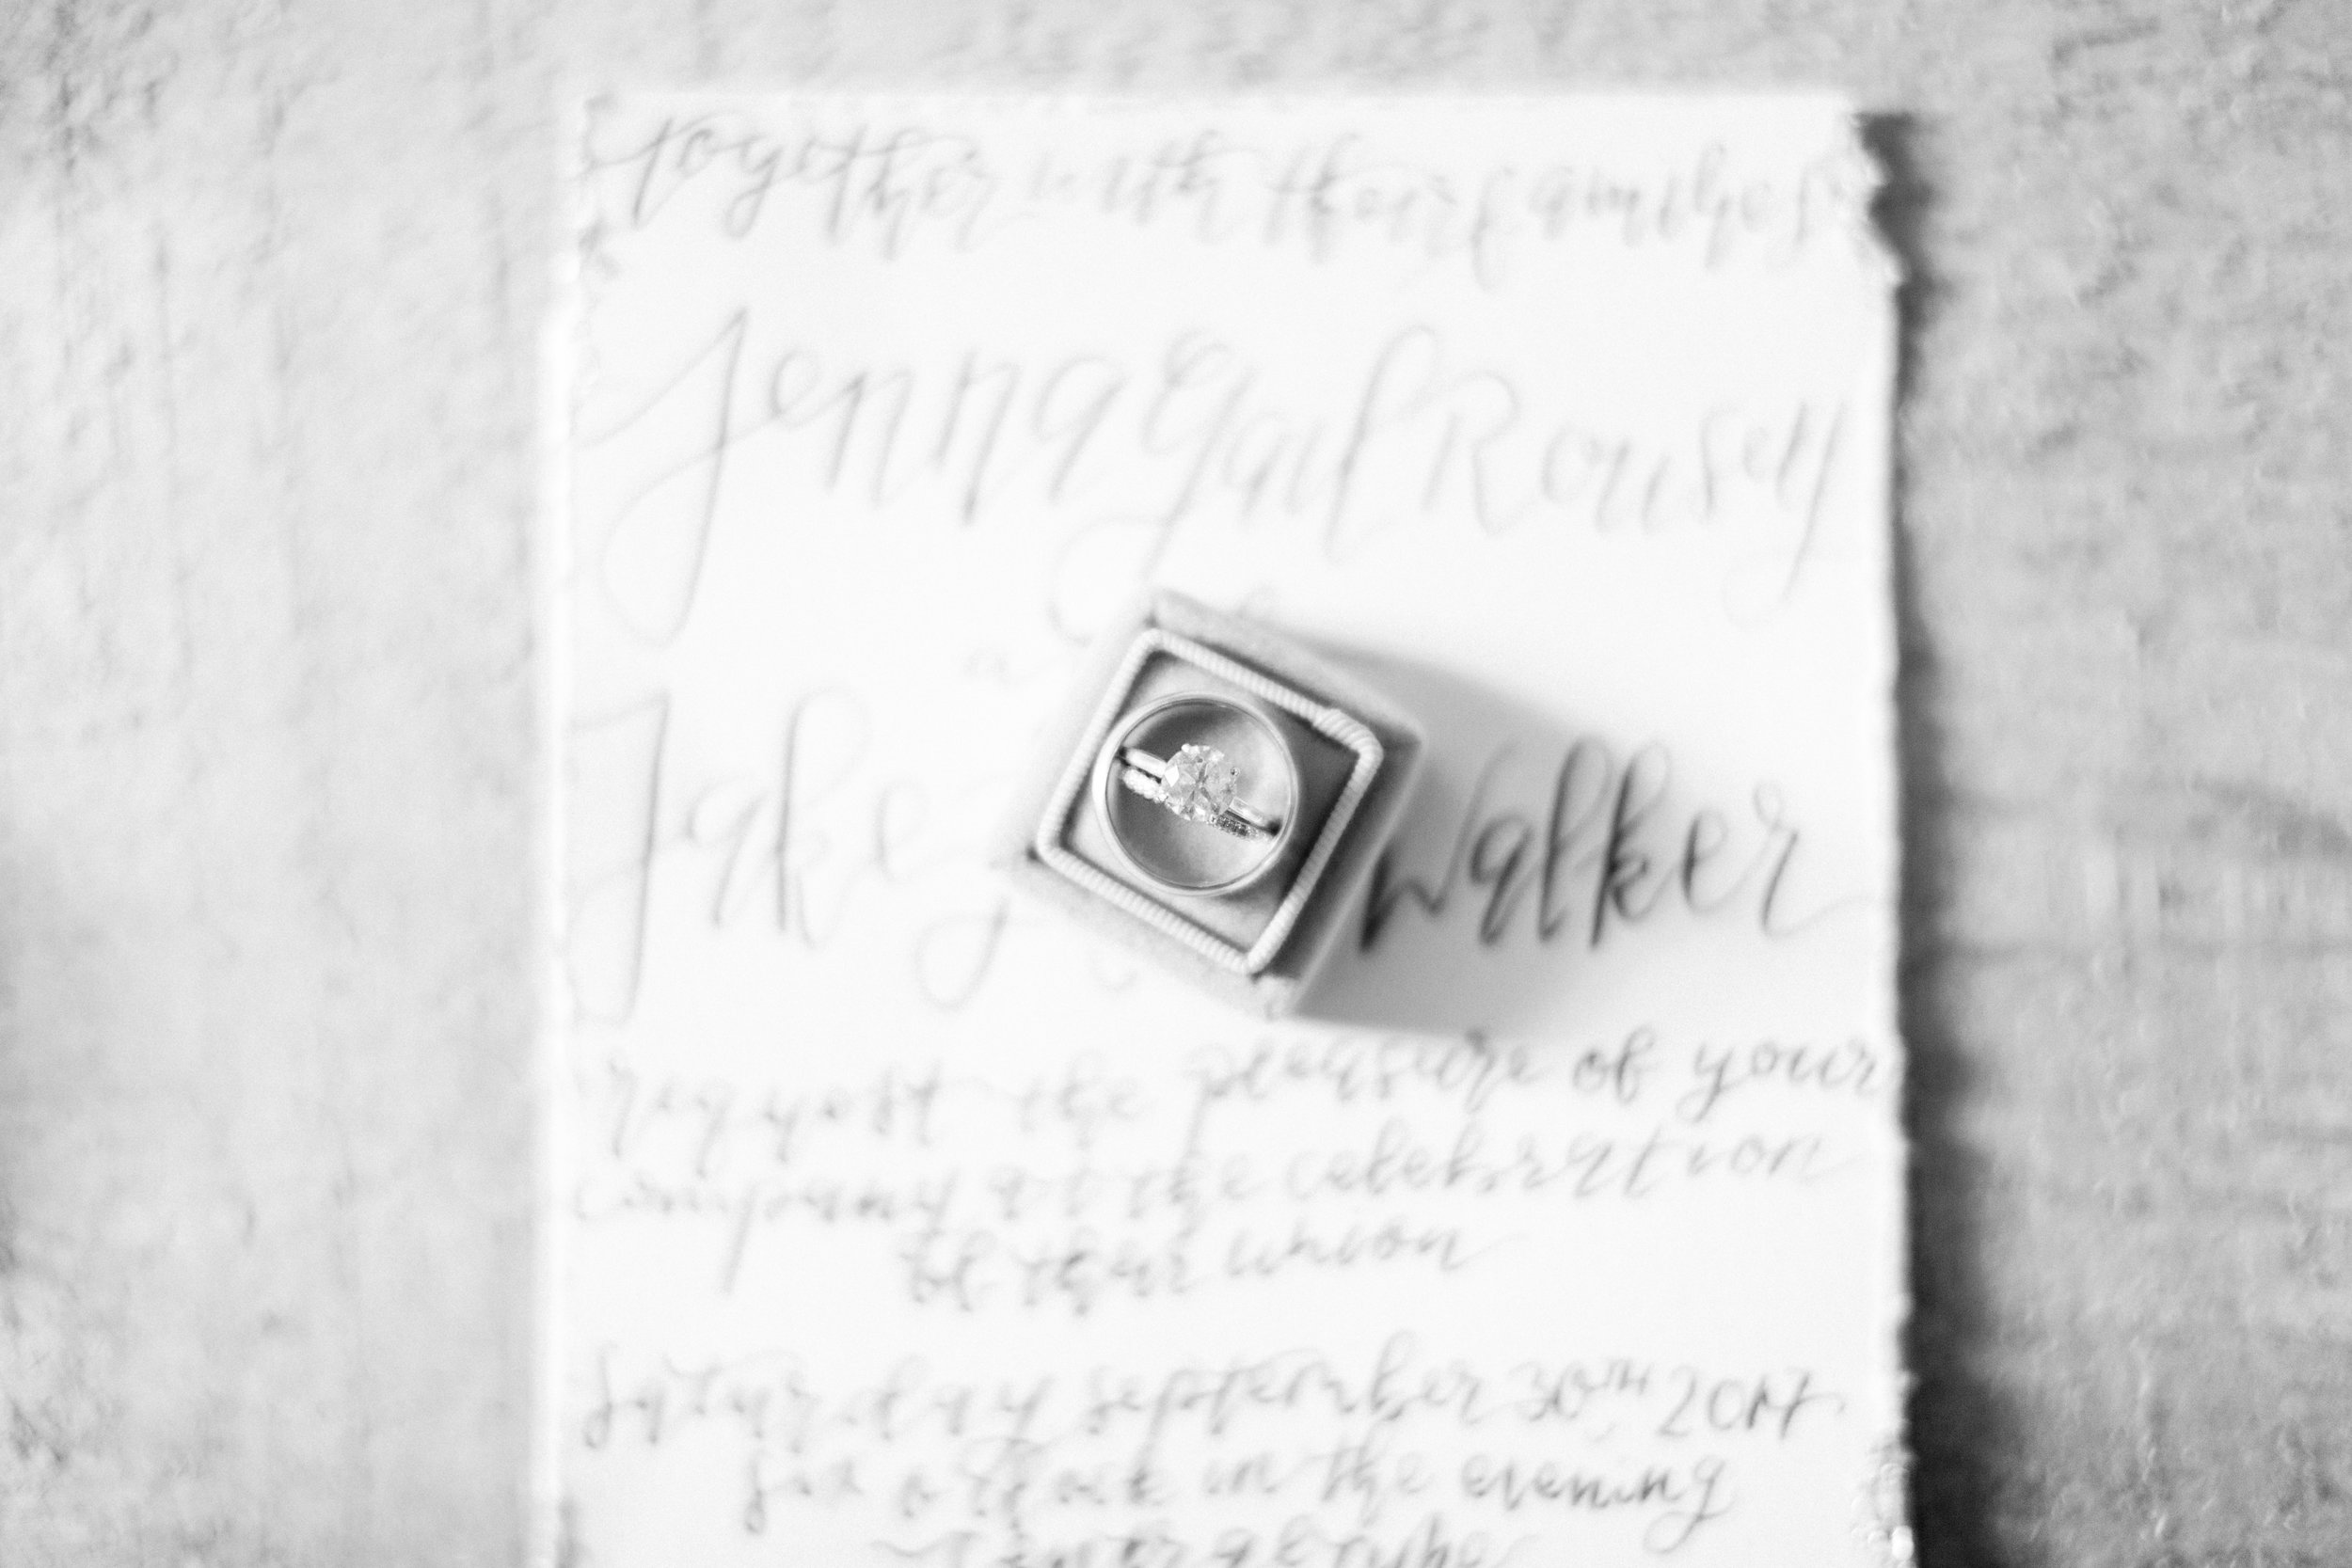 together with their families
Jenna Gail Rousey
Jake Walker
request the pleasure of your
company at the celebration
of their union
Saturday September 30TH 2017
six o'clock in the evening